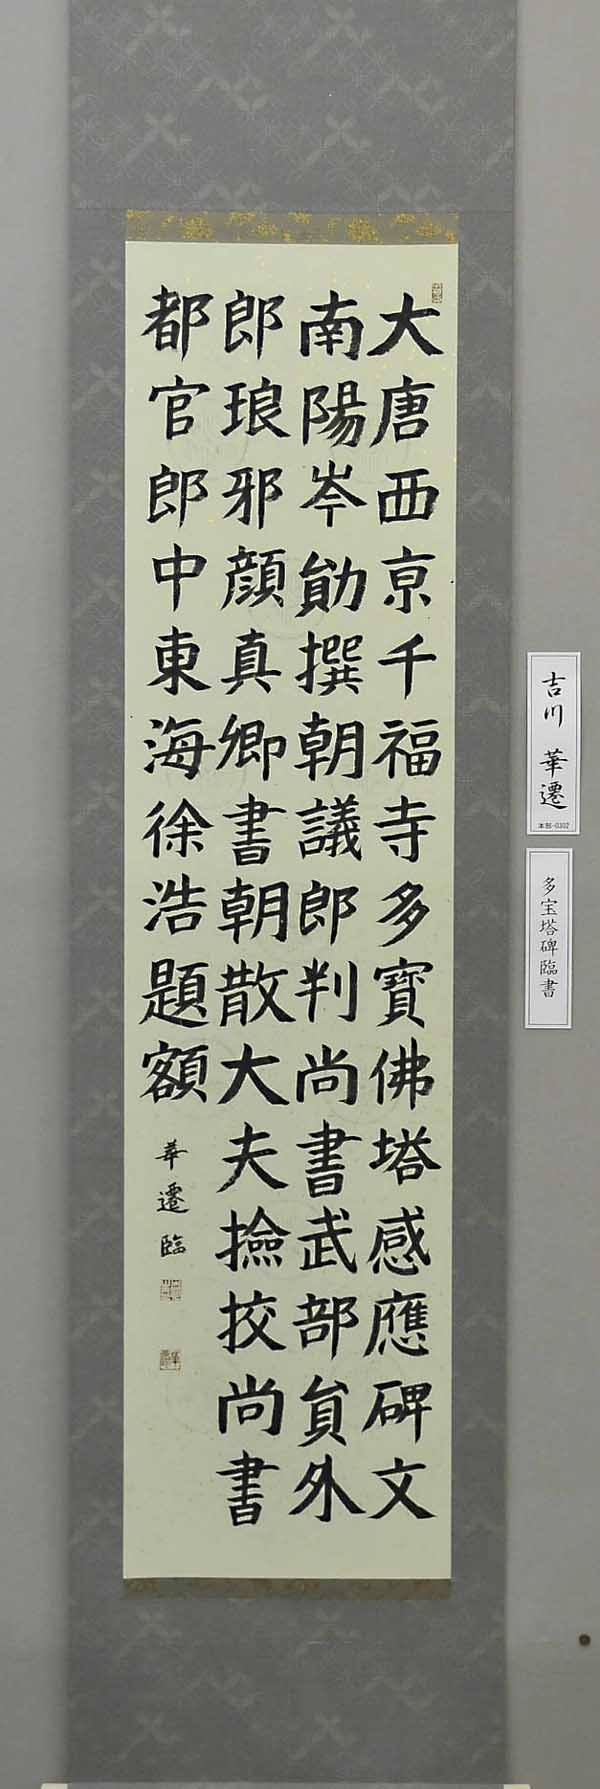 大唐西京千福寺多寶佛塔感應碑文
南陽岑勛撰朝議郎判尚書武部員外
郎琅邪顏真卿書朝散大夫撿挍尚書
都官郎中東海徐浩題額
華遷臨
吉川 華遷
本部-0302
多宝塔碑臨書